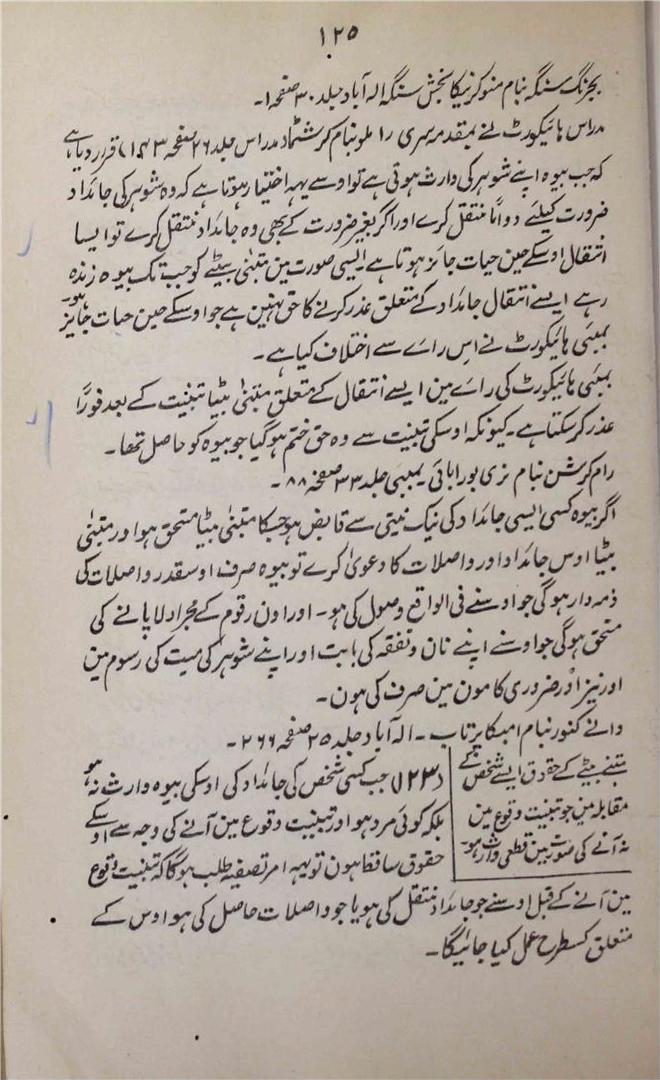 ۱۲۵
بجرنگ سنگہ بنام منوکرنیکا بخش سنگہ الہ آباد جلد ۳۰ صفحہ ۱۔
مدراس ہائیکورٹ نے بمقدمہ سری را ملو بنام کرشٹما (مدراس جلد ۲۶ صفحہ ۱۴۳) قرار دیا ہے
کہ جب بیوہ اپنے شوہر کی وارث ہوتی ہے تو اوسے یہہ اختیار ہوتا ہے کہ وہ شوہر کی جائداد
ضرورت کیلئے دواماً منتقل کرے اور اگر بغیر ضرورت کے بھی وہ جائداد منتقل کرے تو ایسا
انتقال اوسکے حین حیات جائز ہوتا ہے۔ ایسی صورت مین متبنیٰ بیٹے کو جب تک بیوہ زندہ
رہے ایسے انتقال جائداد کے متعلق عذر کرنے کا حق نہین ہے جو اوسکے حین حیات جایز ہو۔
بمبئی ہائیکورٹ نے اس راے سے اختلاف کیا ہے۔
بمبئی ہائیکورٹ کی راے مین ایسے انتقال کے متعلق متبنیٰ بیٹا تبنیت کے بعد فوراً
عذر کرسکتا ہے۔ کیونکہ اوسکی تبنیت سے وہ حق ختم ہوگیا جو بیوہ کو حاصل تھا۔
رام کرشن بنام تری پورابائی۔ بمبئی جلد ۳۳ صفحہ ۸۸۔
اگر بیوہ کسی ایسی جائداد کی نیک نیتی سے قابض ہو جسکا متبنیٰ بیٹا مستحق ہو اور متبنیٰ
بیٹا اوس جائداد اور واصلات کا دعویٰ کرے تو بیوہ صرف اوسقدر واصلات کی
ذمہ دار ہوگی جو اوسنے فی الواقع وصول کی ہو۔ اور اون رقوم کے مجرا دلا پانے کی
مستحق ہوگی جو اوسنے اپنے نان ونفقہ کی بابت اور اپنے شوہر کی میت کی رسوم مین
اور نیز اور ضروری کامون مین صرف کی ہون۔
دالے کنور بنام امبکا پرتاب۔ الہ آباد جلد ۲۵ صفحہ ۲۶۶۔
متبنے بیٹے کے حقوق ایسے شخص کے
مقابلہ مین جو تبنیت وقوع مین
نہ آنے کی صورت مین قطعی وارث ہو۔
(۱۲۳) جب کسی شخص کی جائداد کی اوسکی بیوہ وارث نہ ہو
بلکہ کوئی مرد ہو اور تبنیت وقوع مین آنے کی وجہ سے اوسکے
حقوق ساقط ہون تو یہہ امر تصفیہ طلب ہوگا کہ تبنیت وقوع
مین آنے کے قبل اوسنے جو جائداد منتقل کی ہو یا جو واصلات حاصل کی ہو اوس کے
متعلق کسطرح عمل کیا جائیگا۔